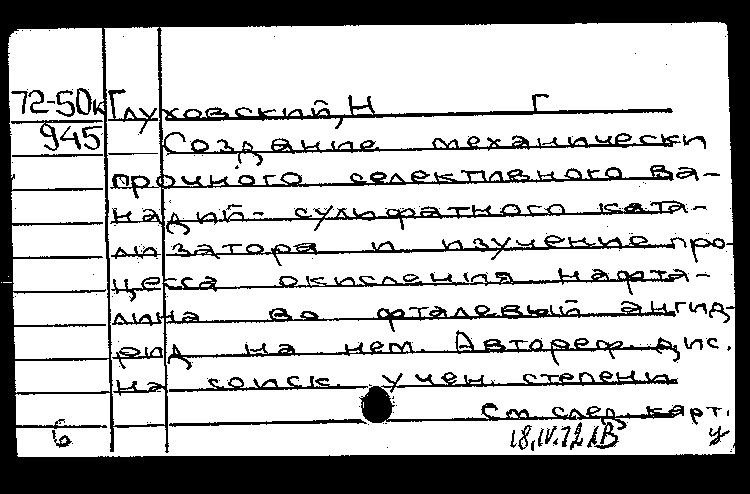 72-50к Глуховский, Н Г
945 Создание механически
прочного селективного ва-
надий-сульфатного ката-
лизатора и изучение про-
цесса окисления нафта-
лина во фталевый ангид-
рид на нем. Автореф. дис.
на соиск. учен. степени
См. след. карт.
6 18.IV.72 у